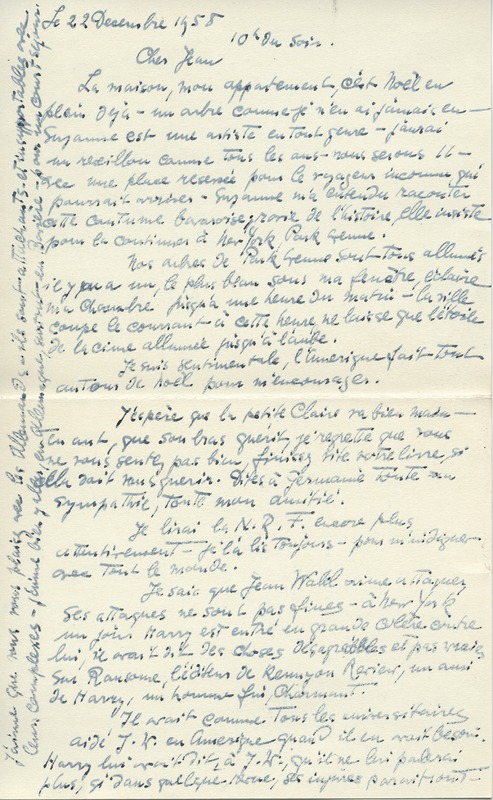 Le 22 Decembre 1958
10h du Soir.
Cher Jean
La maison, mon appartement, c'est Noël en
plein déjà - un arbre comme je n'en ai jamais eu -
Suzanne est une artiste en tout genre - j'aurai
un reveillon comme tous les ans - nous serons 11 -
avec une place reservée pour le voyageur inconnu qui
pourrait arriver - Suzanne m'a entendu raconter
cette coutume bavaroise, ravie de l'histoire, elle insiste
pour la continuer à New York Park Avenue.
Nos arbres de Park Avenue sont tous allumés
il y en a un, le plus beau sous ma fenêtre, éclaire
ma chambre jusqu'à une heure du matin - la ville
coupe le courrant à cette heure, ne laisse que l'étoile
de la cime allumée jusqu'à l'aube.
Je suis sentimentale, l'Amerique fait tout
autour de Noël pour m'encourager.
J'espère que la petite Claire va bien main-
tenant, que son bras guerit, je regrette que vous
ne vous sentez pas bien, finissez vite votre livre, si
elle doit vous guerir. Dites à Germaine toute ma
sympathie, toute mon amitié.
Je lirai la N.R.F. encore plus
attentivement - je la lis toujours - pour m'indigner
avec tout le monde.
Je sais que Jean Wahl aime attaquer,
ses attaques ne sont pas fines - à New York
un jour Harry est entré en grande colère contre
lui, il avait dit des choses désagréables et pas vraies
sur Ransome, l'éditeur de Kenyon Review, un ami
de Harry, un homme fui, charmant.
Il avait comme tous les universitaires
aidé J. W. en Amerique quand il en avait besoin.
Harry lui avait dit, à J. W. qu'il ne lui parlerai
plus, si dans quelque revue, ses injures paraitront -
J'aime que vous vous plaisez avec les Allemands - ils sont attachants et insupportables avec
leurs complexes - j'aime bien y aller, en Allemagne, surtout en Bavière - pour un court séjour.